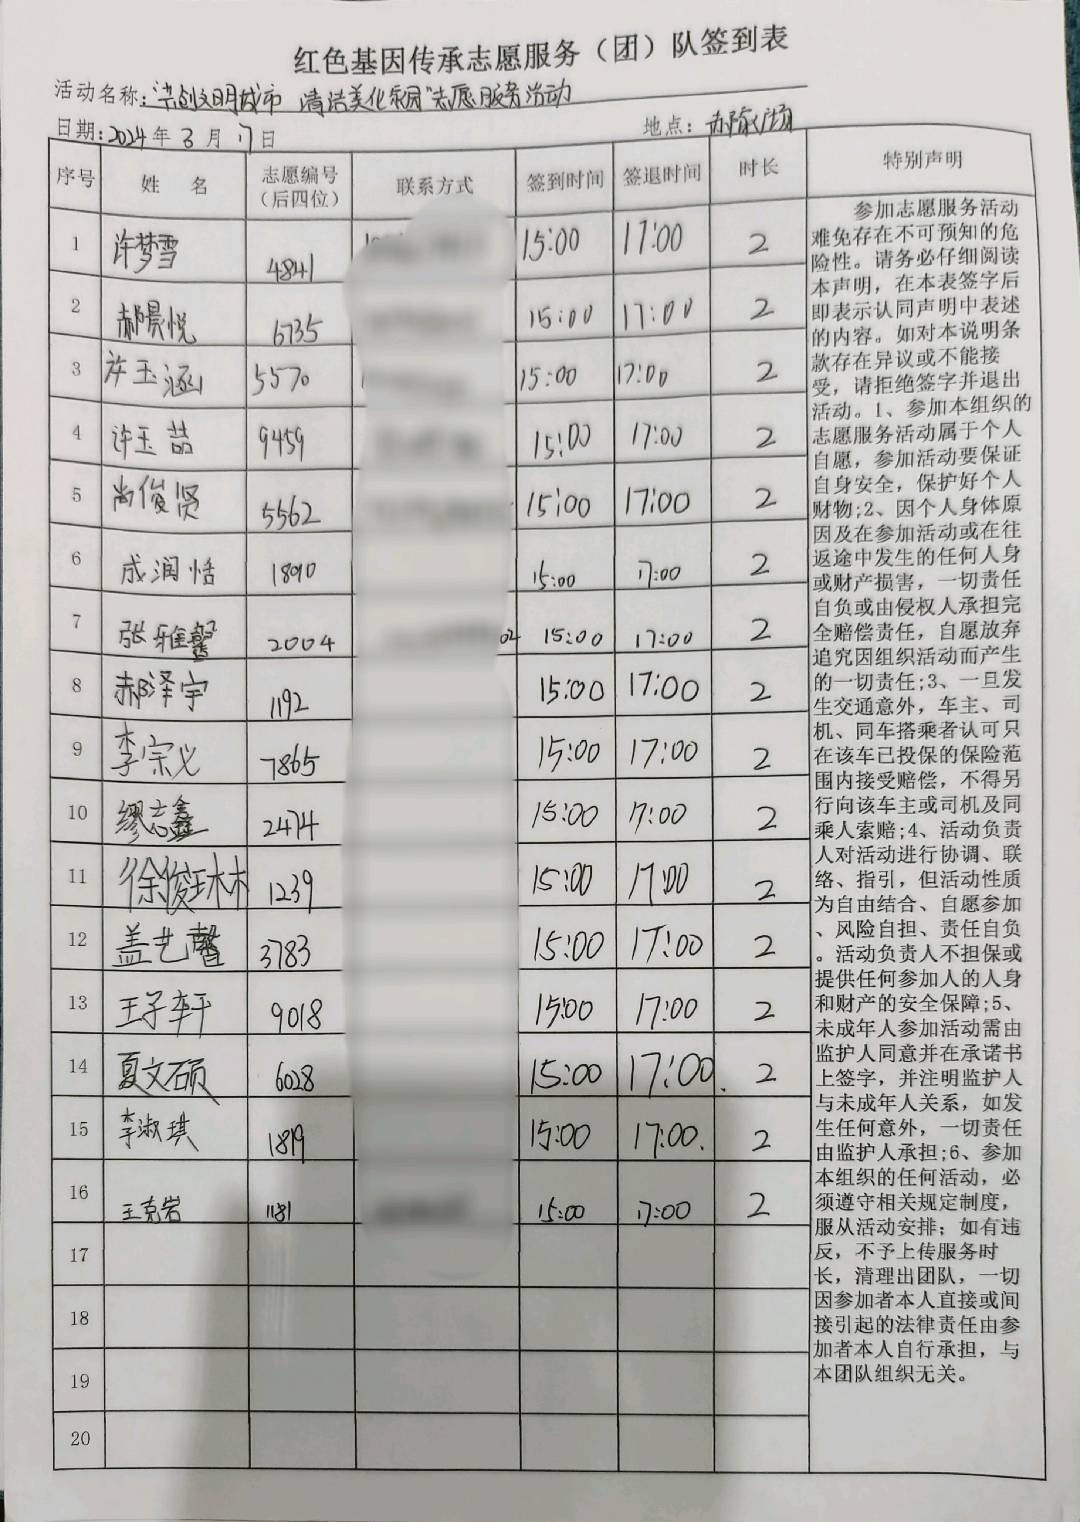 红色基因传承志愿服务（团）队签到表
活动名称："共创文明城市 清洁美化家园"志愿服务活动
日期：2024年3月17日 地点：
序号 姓 名 志愿编号（后四位） 联系方式 签到时间 签退时间 时长 特别声明
1 许梦雪 4841 15:00 17:00 2
2 郝晨悦 6735 15:00 17:00 2
3 许玉涵 5570 15:00 17:00 2
4 许玉喆 9459 15:00 17:00 2
5 尚俊贤 5562 15:00 17:00 2
6 成润恬 1890 15:00 17:00 2
7 张雅馨 2004 02 15:00 17:00 2
8 郝泽宇 1192 15:00 17:00 2
9 李宗义 7865 15:00 17:00 2
10 缪志鑫 2474 15:00 17:00 2
11 徐俊琳 1239 15:00 17:00 2
12 盖艺馨 3783 15:00 17:00 2
13 王子轩 9018 15:00 17:00 2
14 夏文硕 6028 15:00 17:00. 2
15 李淑琪 1819 15:00 17:00. 2
16 王克岩 1181 15:00 17:00 2
17
18
19
20
参加志愿服务活动
难免存在不可预知的危
险性。请务必仔细阅读
本声明，在本表签字后
即表示认同声明中表述
的内容。如对本说明条
款存在异议或不能接
受，请拒绝签字并退出
活动。1、参加本组织的
志愿服务活动属于个人
自愿，参加活动要保证
自身安全，保护好个人
财物;2、因个人身体原
因及在参加活动或在往
返途中发生的任何人身
或财产损害，一切责任
自负或由侵权人承担完
全赔偿责任，自愿放弃
追究因组织活动而产生
的一切责任;3、一旦发
生交通意外，车主、司
机、同车搭乘者认可只
在该车已投保的保险范
围内接受赔偿，不得另
行向该车主或司机及同
乘人索赔;4、活动负责
人对活动进行协调、联
络、指引，但活动性质
为自由结合、自愿参加
、风险自担、责任自负
。活动负责人不担保或
提供任何参加人的人身
和财产的安全保障;5、
未成年人参加活动需由
监护人同意并在承诺书
上签字，并注明监护人
与未成年人关系，如发
生任何意外，一切责任
由监护人承担;6、参加
本组织的任何活动，必
须遵守相关规定制度，
服从活动安排；如有违
反，不予上传服务时
长，清理出团队，一切
因参加者本人直接或间
接引起的法律责任由参
加者本人自行承担，与
本团队组织无关。